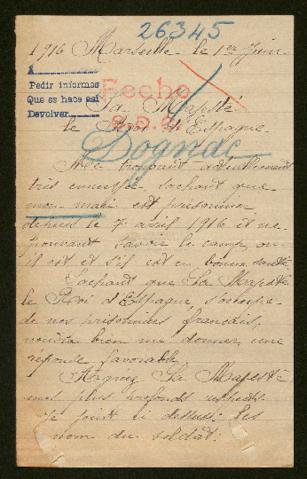 26345
1916 Marseille le 1er Juin
A
Pedir informes
Que se hace así
Devolver
Fecho
Sa Majesté
le Roi d'Espagne
Me trouvant actuellement
très ennuyée, sachant que
mon mari est prisonnier
depuis le 7 avril 1916 et ne
pouvant savoir le camp ou
il est et s'il est en bonne santé
Sachant que Sa Majesté
le Roi d'Espagne, s'occupe
de nos prisonniers français,
voudra bien me donner une
réponse favorable
Agréez Sa Majesté
mes plus profonds respects
Je joint ci dessus: les
nom du soldat: